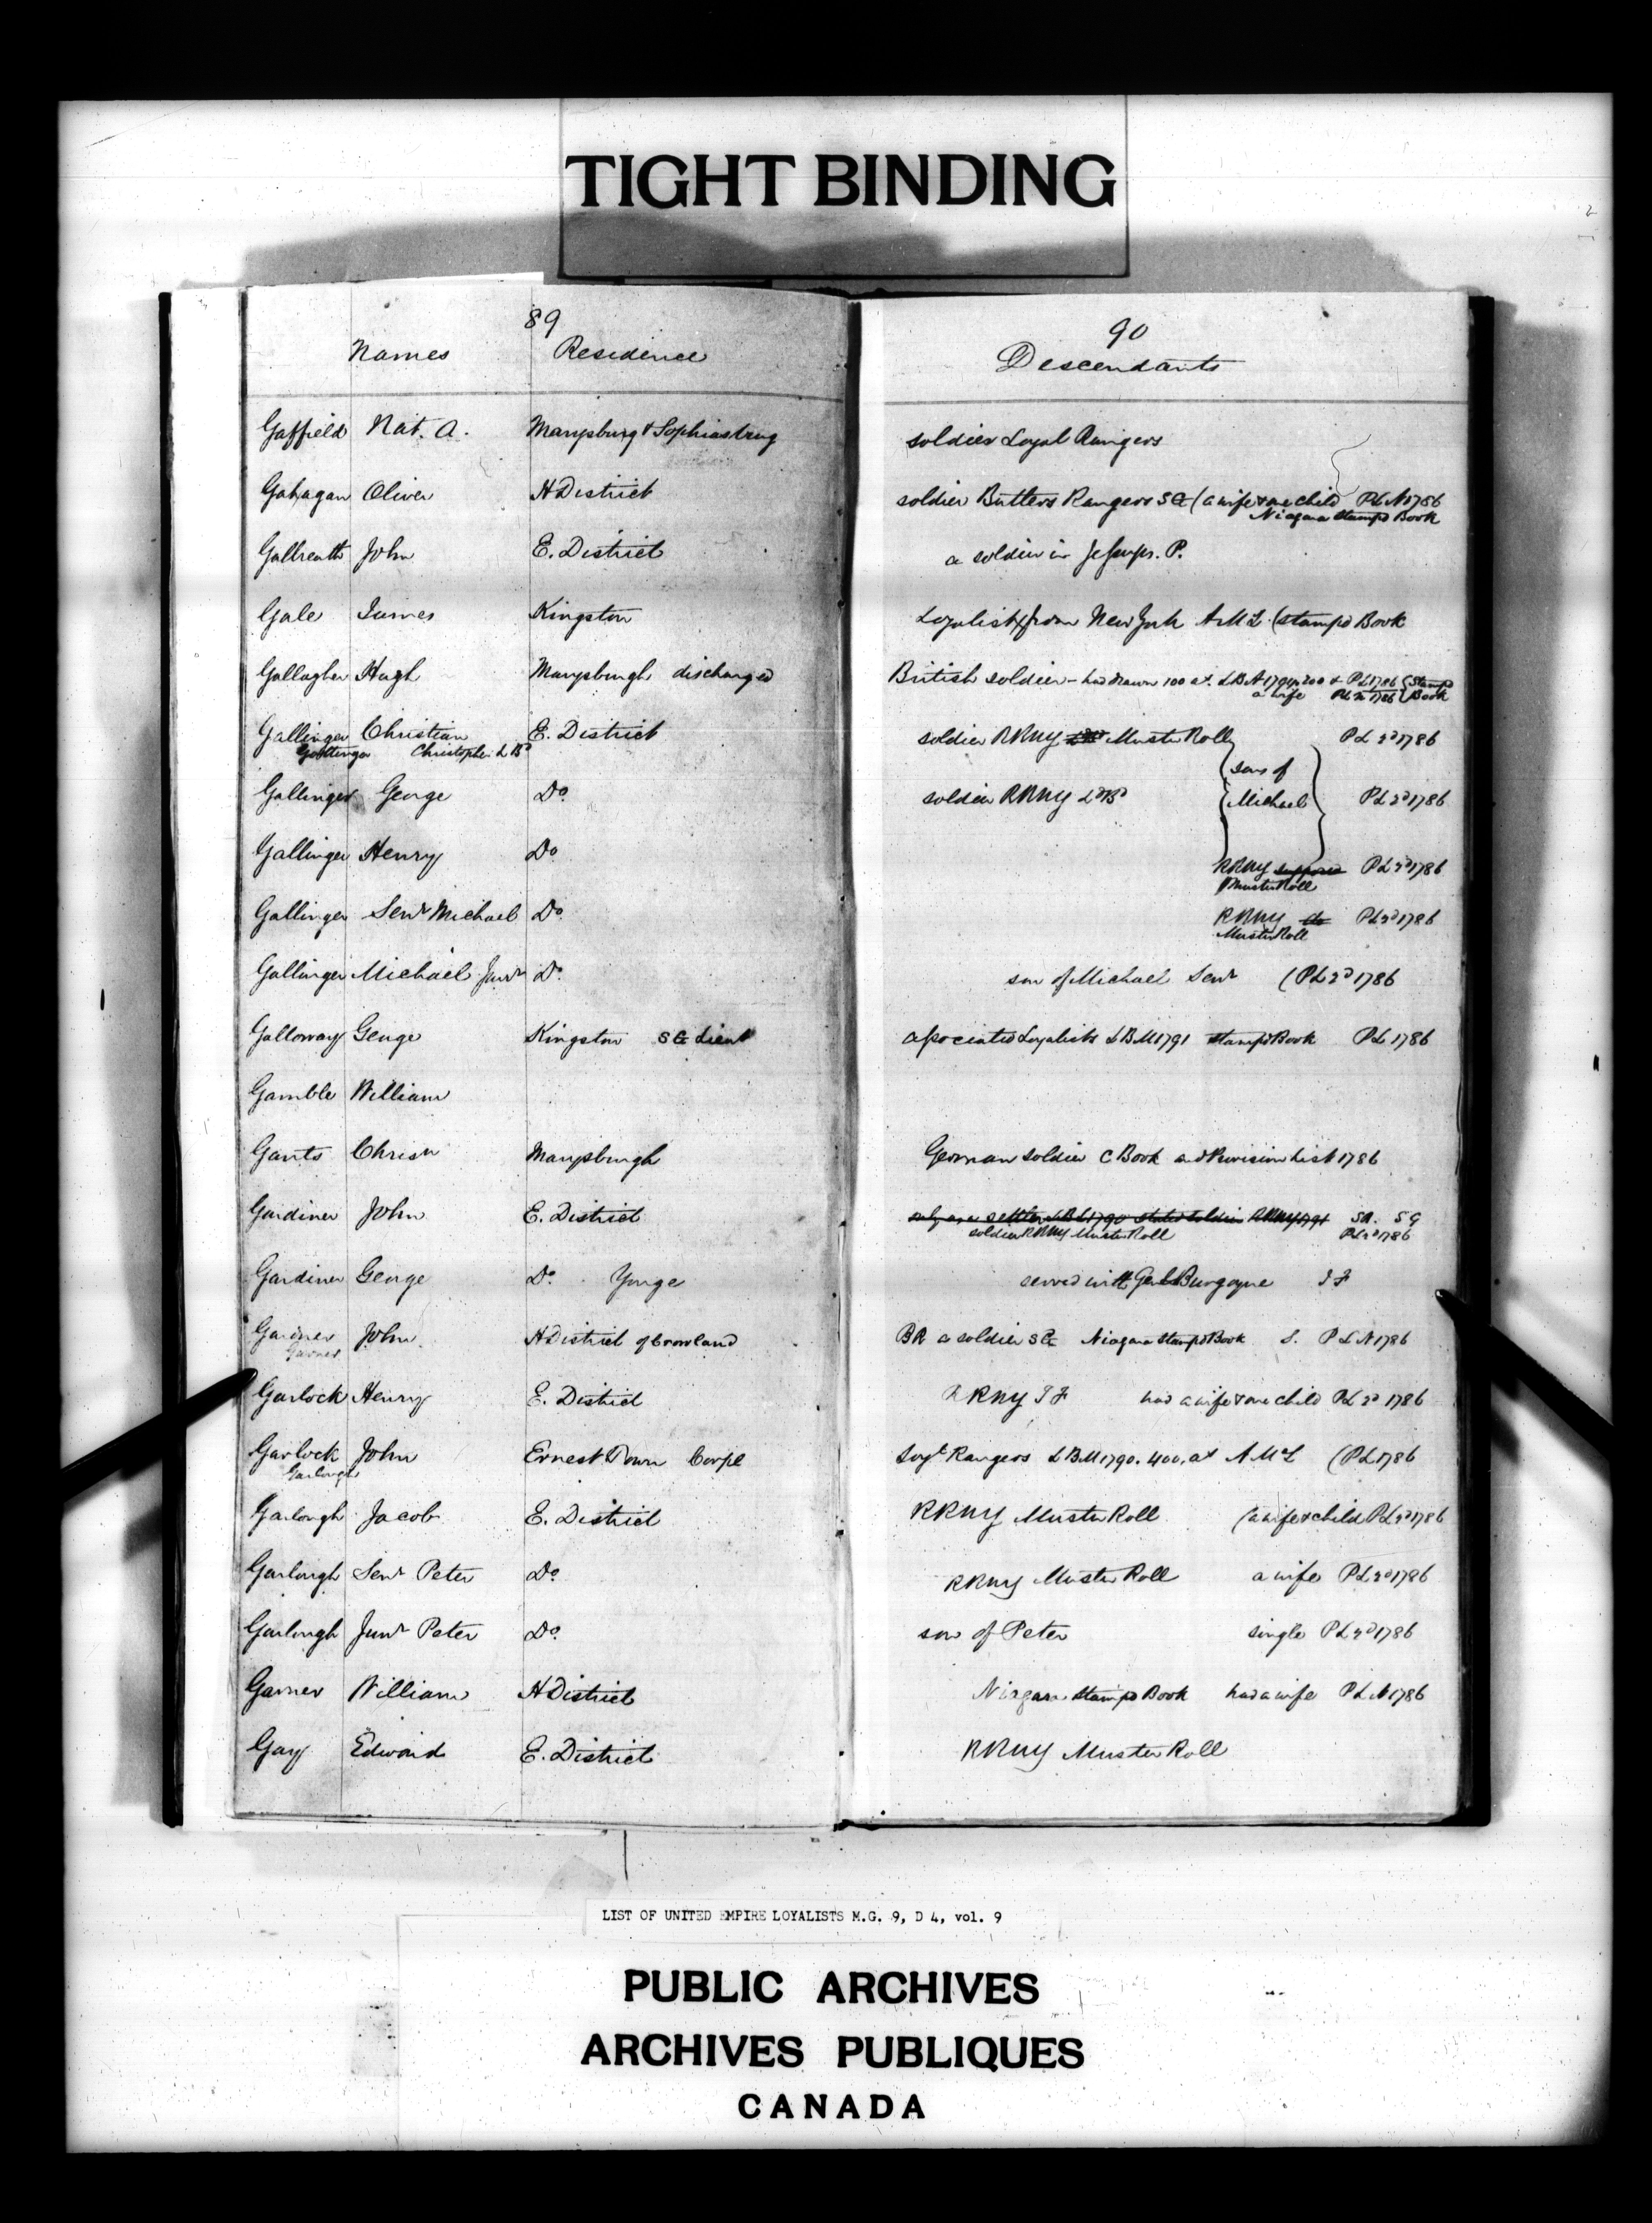 TIGHT BINDING
89
90
Names Residence
Descendants
Gaffield Nat. A. Marysburg & Sophiasburg soldier Loyal Rangers
Gahagan Oliver H District soldier Butlers Rangers SG (a wife & one child PLN 1786
Niagara Stampd Book
Galbreath John E. District a soldier in Jessups. P.
Gale James Kingston Loyalist from New York A McL (stampd Book
Gallagher Hugh Marysburgh discharged British soldier - had drawn 100 at. LBA 1790, 200 & PL 1786 {Stampd
a wife PL 2d 1786 {Book
Gallinger Christian E. District soldier RRNY Muster Roll PL 2d 1786
Christopher LBd
Gallinger George Do soldier RRNY LdBd {sons of Michael} PL 2d 1786
Gallinger Henry Do RRNY suppose PL 2d 1786
Muster Roll
Gallinger Senr Michael Do RRNY do PL 2d 1786
Muster Roll
Gallinger Michael Junr Do son of Michael Senr (PL 2d 1786
Galloway George Kingston SG Lieut associated Loyalists LBM 1791 stampd Book PL 1786
Gamble William
Gants Chrisn Marysburgh German soldier C Book and Provision List 1786
Gardiner John E. District only as a settler LBL 1790 stated soldier RRNY 1791 SR. SG
soldier RRNY Muster Roll PL 2d 1786
Gardiner George Do Yonge served with Genl Burgoyne IF
Gardner John H District of Crowland BR a soldier SG Niagara Stampd Book S. PLN 1786
Garner
Garlock Henry E. District RRNY IF had a wife & one child PL 2d 1786
Garlock John Ernest Town Corpl Loyl Rangers LBM 1790. 400. at A McL (PL 1786
Garlough
Garlough Jacob E. District RRNY Muster Roll (a wife & child PL 2d 1786
Garlough Senr Peter Do RRNY Muster Roll a wife PL 2d 1786
Garlough Junr Peter Do son of Peter single PL 2d 1786
Garner William H District Niagara Stampd Book had a wife PLN 1786
Gay Edward E. District RRNY Muster Roll
LIST OF UNITED EMPIRE LOYALISTS M.G. 9, D 4, vol. 9
PUBLIC ARCHIVES
ARCHIVES PUBLIQUES
CANADA